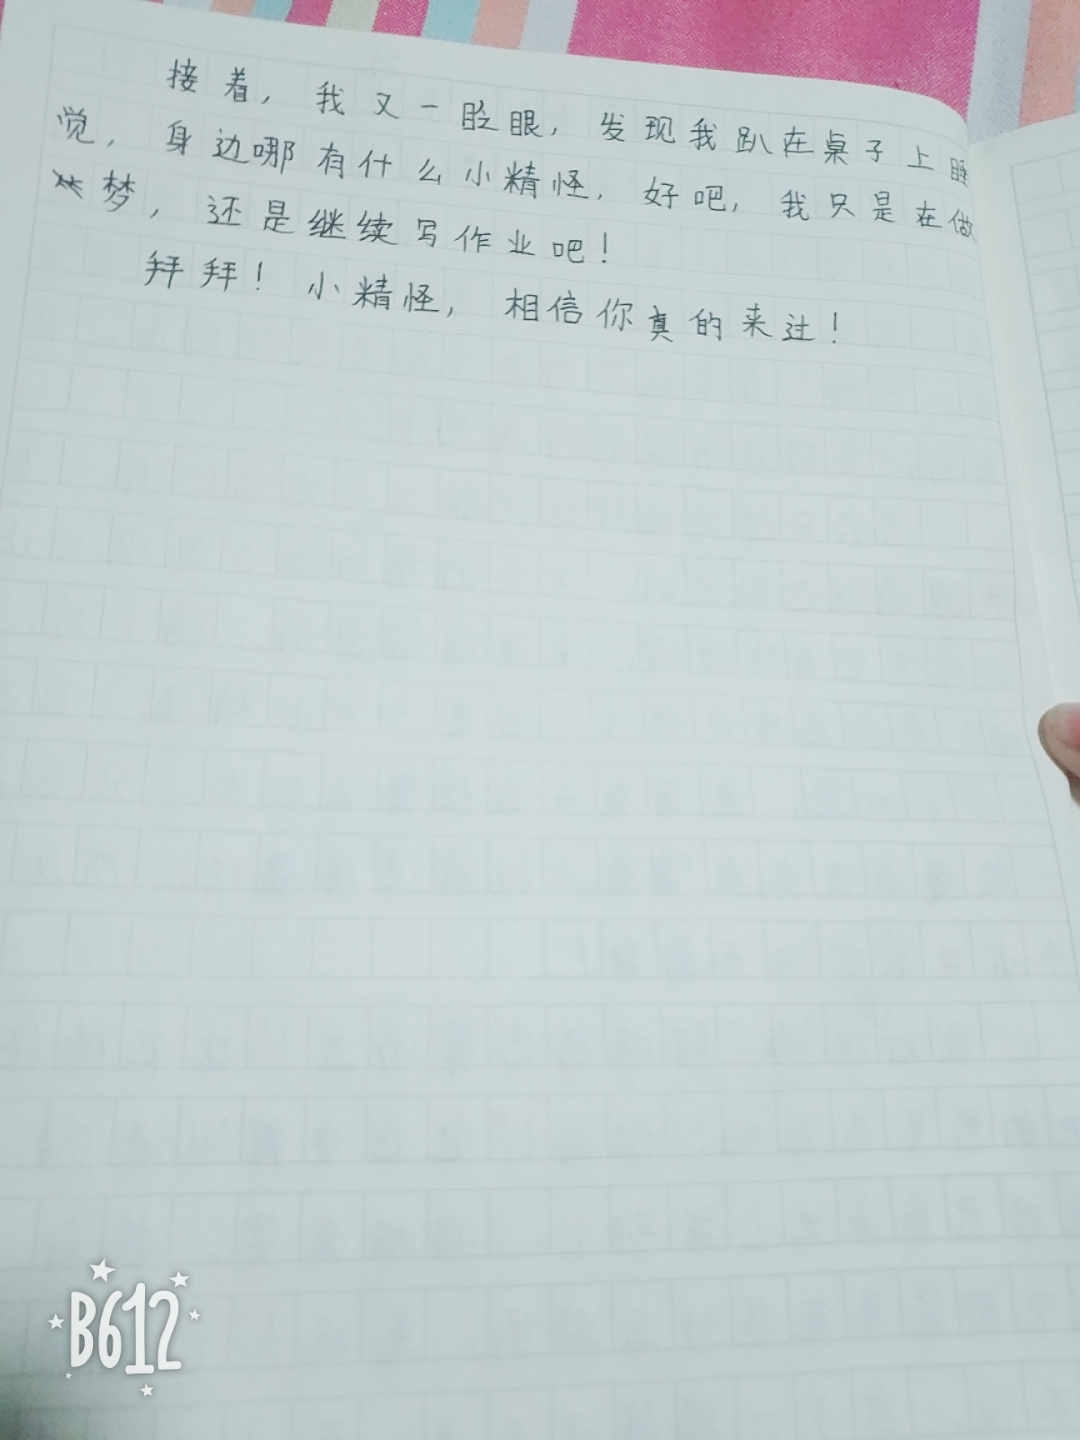 接着，我又一眨眼，发现我趴在桌子上睡
觉，身边哪有什么小精怪，好吧，我只是在做
梦，还是继续写作业吧！
拜拜！小精怪，相信你真的来过！
B612